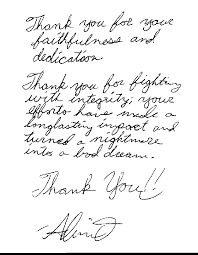 Thank you for your
faithfulness and
dedication.
Thank you for fighting
with integrity; your
efforts have made a
longlasting impact and
turned a nightmare
into a good dream.
Thank You!!